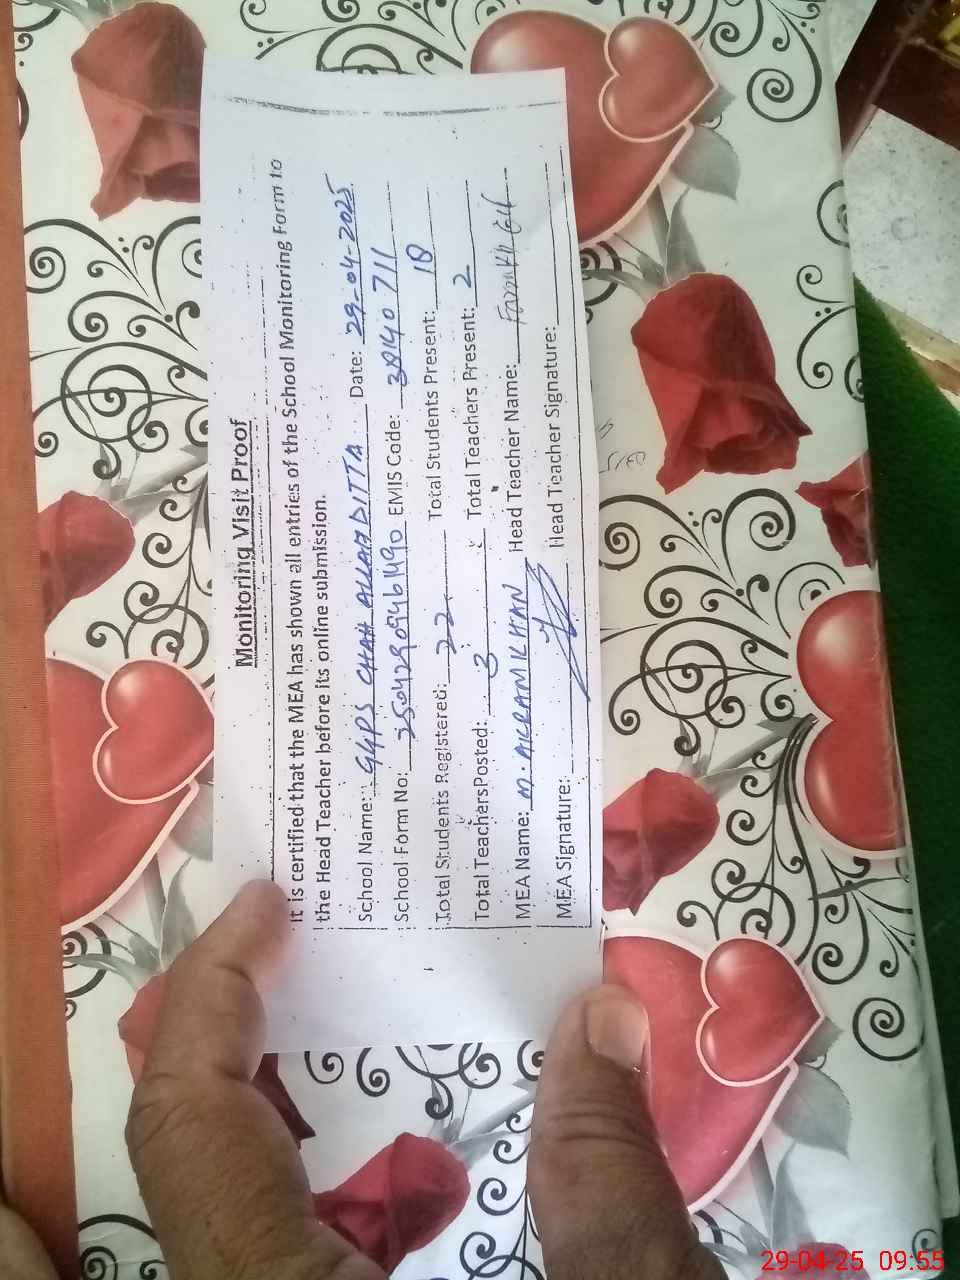 Monitoring Visit Proof
It is certified that the MEA has shown all entries of the School Monitoring Form to
the Head Teacher before its online submission.
School Name: GGPS CHAH ALLAH DITTA Date: 29-04-2025
School Form No: 25042909461490 EMIS Code: 38140711
Total Students Registered: 22 Total Students Present: 18
Total Teachers Posted: 3 Total Teachers Present: 2
MEA Name: M. AKRAM KHAN Head Teacher Name:
MEA Signature: Head Teacher Signature:
29-04-25 09:55